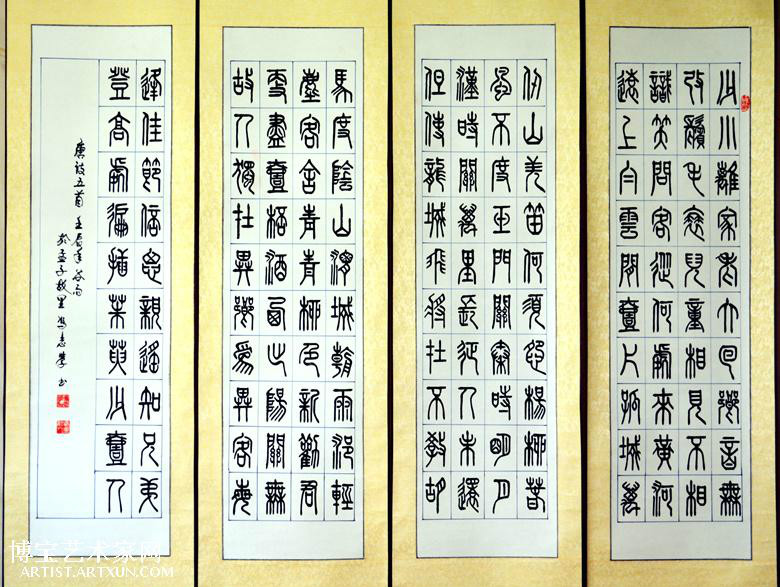 少小離家老大回鄉音無
改鬢毛衰兒童相見不相
識笑問客從何處來黃河
遠上白雲間壹片孤城萬
仞山羌笛何須怨楊柳春
風不度玉門關秦時明月
漢時關萬里長征人未還
但使龍城飛將在不教胡
馬度陰山渭城朝雨浥輕
塵客舍青青柳色新勸君
更盡壹杯酒西出陽關無
故人獨在異鄉為異客每
逢佳節倍思親遙知兄弟
登高處遍插茱萸少壹人
唐詩五首 壬辰年
於孟子故里馮志書
博宝艺术家网
ARTIST.ARTXUN.COM